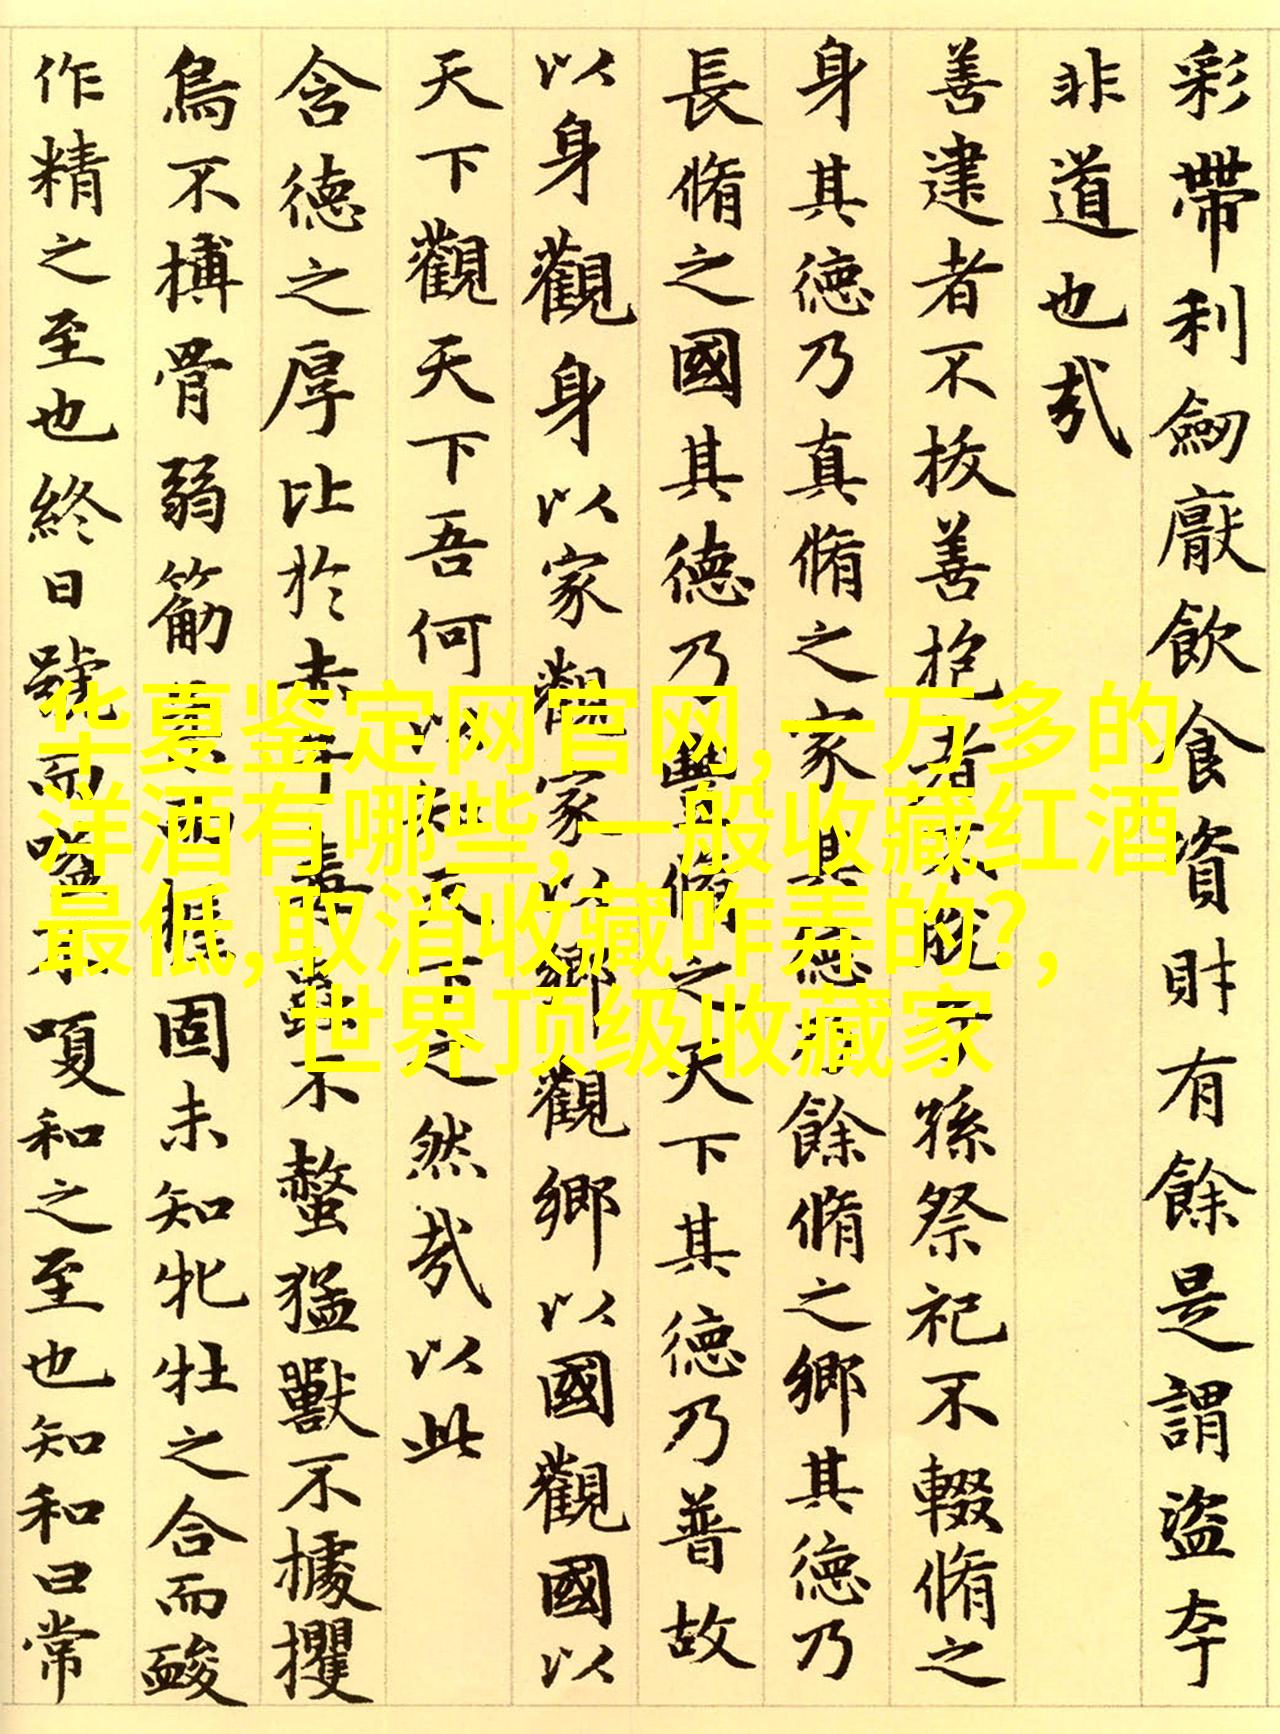 彩帶利劔厭飲食資財有餘是謂盗夸
非道也㢤
善建者不拔善抱者不脫子孫祭祀不輟脩之
身其德乃真脩之家其德有餘脩之鄉其德乃
長脩之國其德乃豐脩之天下其德乃普故
以身觀身以家觀家以鄉觀鄉以國觀國以
天下觀天下吾何以知天下之然㢤以此
含德之厚比於赤子毒蟲不螫猛獸不據攫
鳥不搏骨弱筋柔而握固未知牝牡之合而酸
作精之至也終日號而嗌不嗄和之至也知和曰常
华夏鉴定网官网,一万多的
洋酒有哪些,一般收藏红酒
最低,取消收藏咋弄的?,
世界顶级收藏家